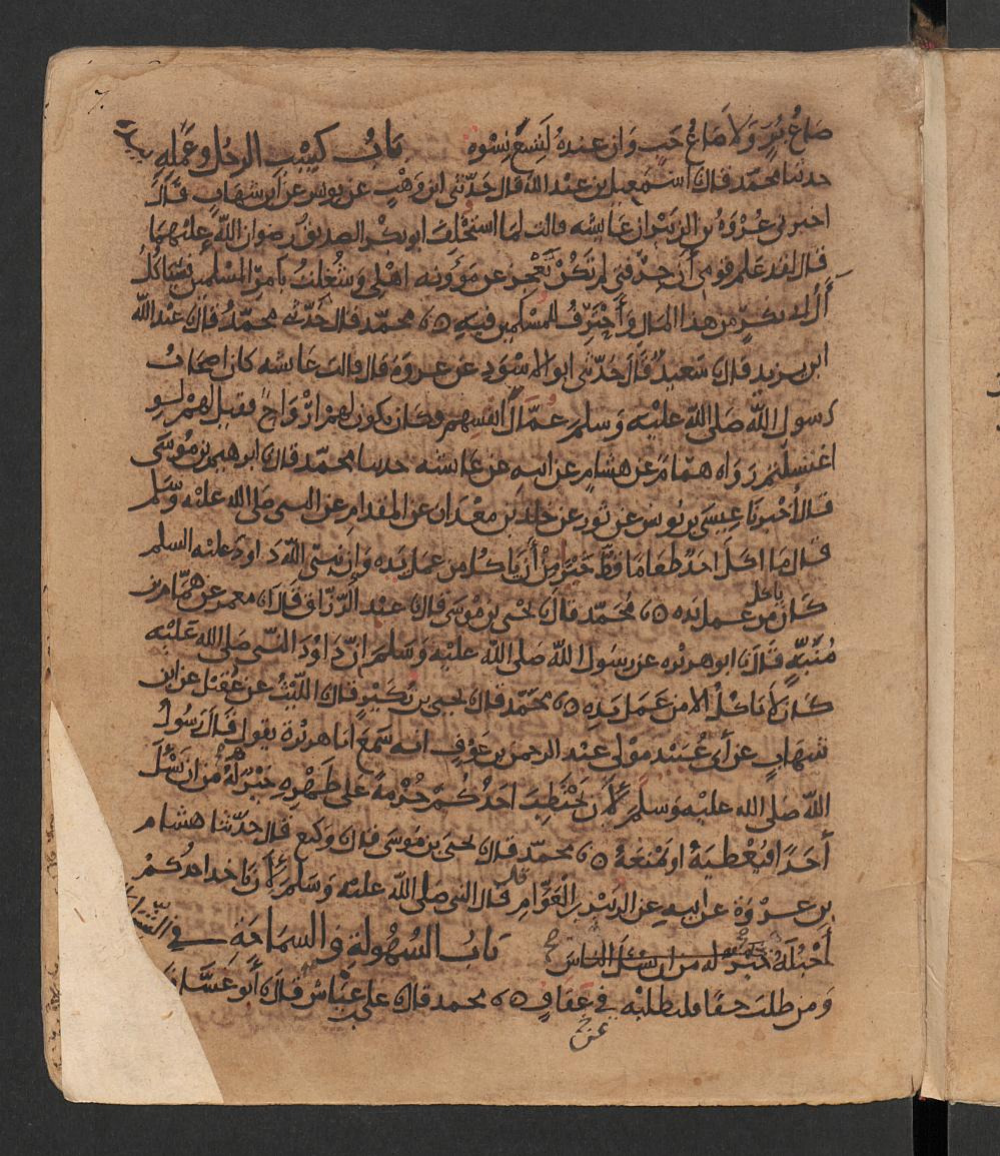 صاع بر ولا صاع حب وان عنده لتسع نسوه باب كسب الرجل وعمله بيده
حدثنا محمد قال اسمعيل بن عبد الله قال حدثني ابن وهب عن يونس عن ابن شهاب قال
اخبرني عروة بن الزبير ان عايشه قالت لما استخلف ابو بكر الصديق رضوان الله عليهما
قال لقد علم قومي أن حرفتي لم تكن تعجز عن مؤونه اهلي وشغلت بامر المسلمين فسيأكل
آل ابي بكر من هذا المال وأحترف للمسلمين فيه ٥ محمد قال حدثني محمد قال عبد الله
ابن يزيد قال سعيد قال حدثني ابو الاسود عن عروة قال قالت عايشه كان اصحاب
رسول الله صلى الله عليه وسلم عمال انفسهم وكان يكون لهم ارواح فقيل لهم لو
اغتسلتم رواه همام عن هشام عن ابيه عن عايشه حدثنا محمد قال ابرهيم بن موسى
قال أخبرنا عيسى بن يونس عن ثور عن خلد بن معدان عن المقدام عن النبي صلى الله عليه وسلم
قال ما اكل احد طعاما قط خير من أن ياكل من عمل يده وان نبي الله داود عليه السلم
كان ياكل من عمل يده ٥ محمد قال يحيى بن موسى قال عبد الرزاق قال معمر عن همام بن
منبه قال ابو هريره عن رسول الله صلى الله عليه وسلم ان داود النبي صلى الله عليه
كان لا ياكل الا من عمل يده ٥ محمد قال يحيى بن بكير قال الليث عن عقيل عن ابن
شهاب عن أبي عبيد مولى عبد الرحمن بن عوف انه سمع أبا هريرة يقول قال رسول
الله صلى الله عليه وسلم لأن يحتطب احدكم حزمة على ظهره خير له من ان يسل
أحدا فيعطيه او يمنعه ٥ محمد قال يحيى بن موسى قال وكيع قال حدثنا هشام
بن عروة عن ابيه عن الزبير بن العوام قال قال النبي صلى الله عليه وسلم لأن ياخذ احدكم
أحبله خير له من ان يسل الناس باب السهولة والسماحة في الشراء
ومن طلب حقا فليطلبه في عفاف ٥ محمد قال علي بن عياش قال أبو غسان